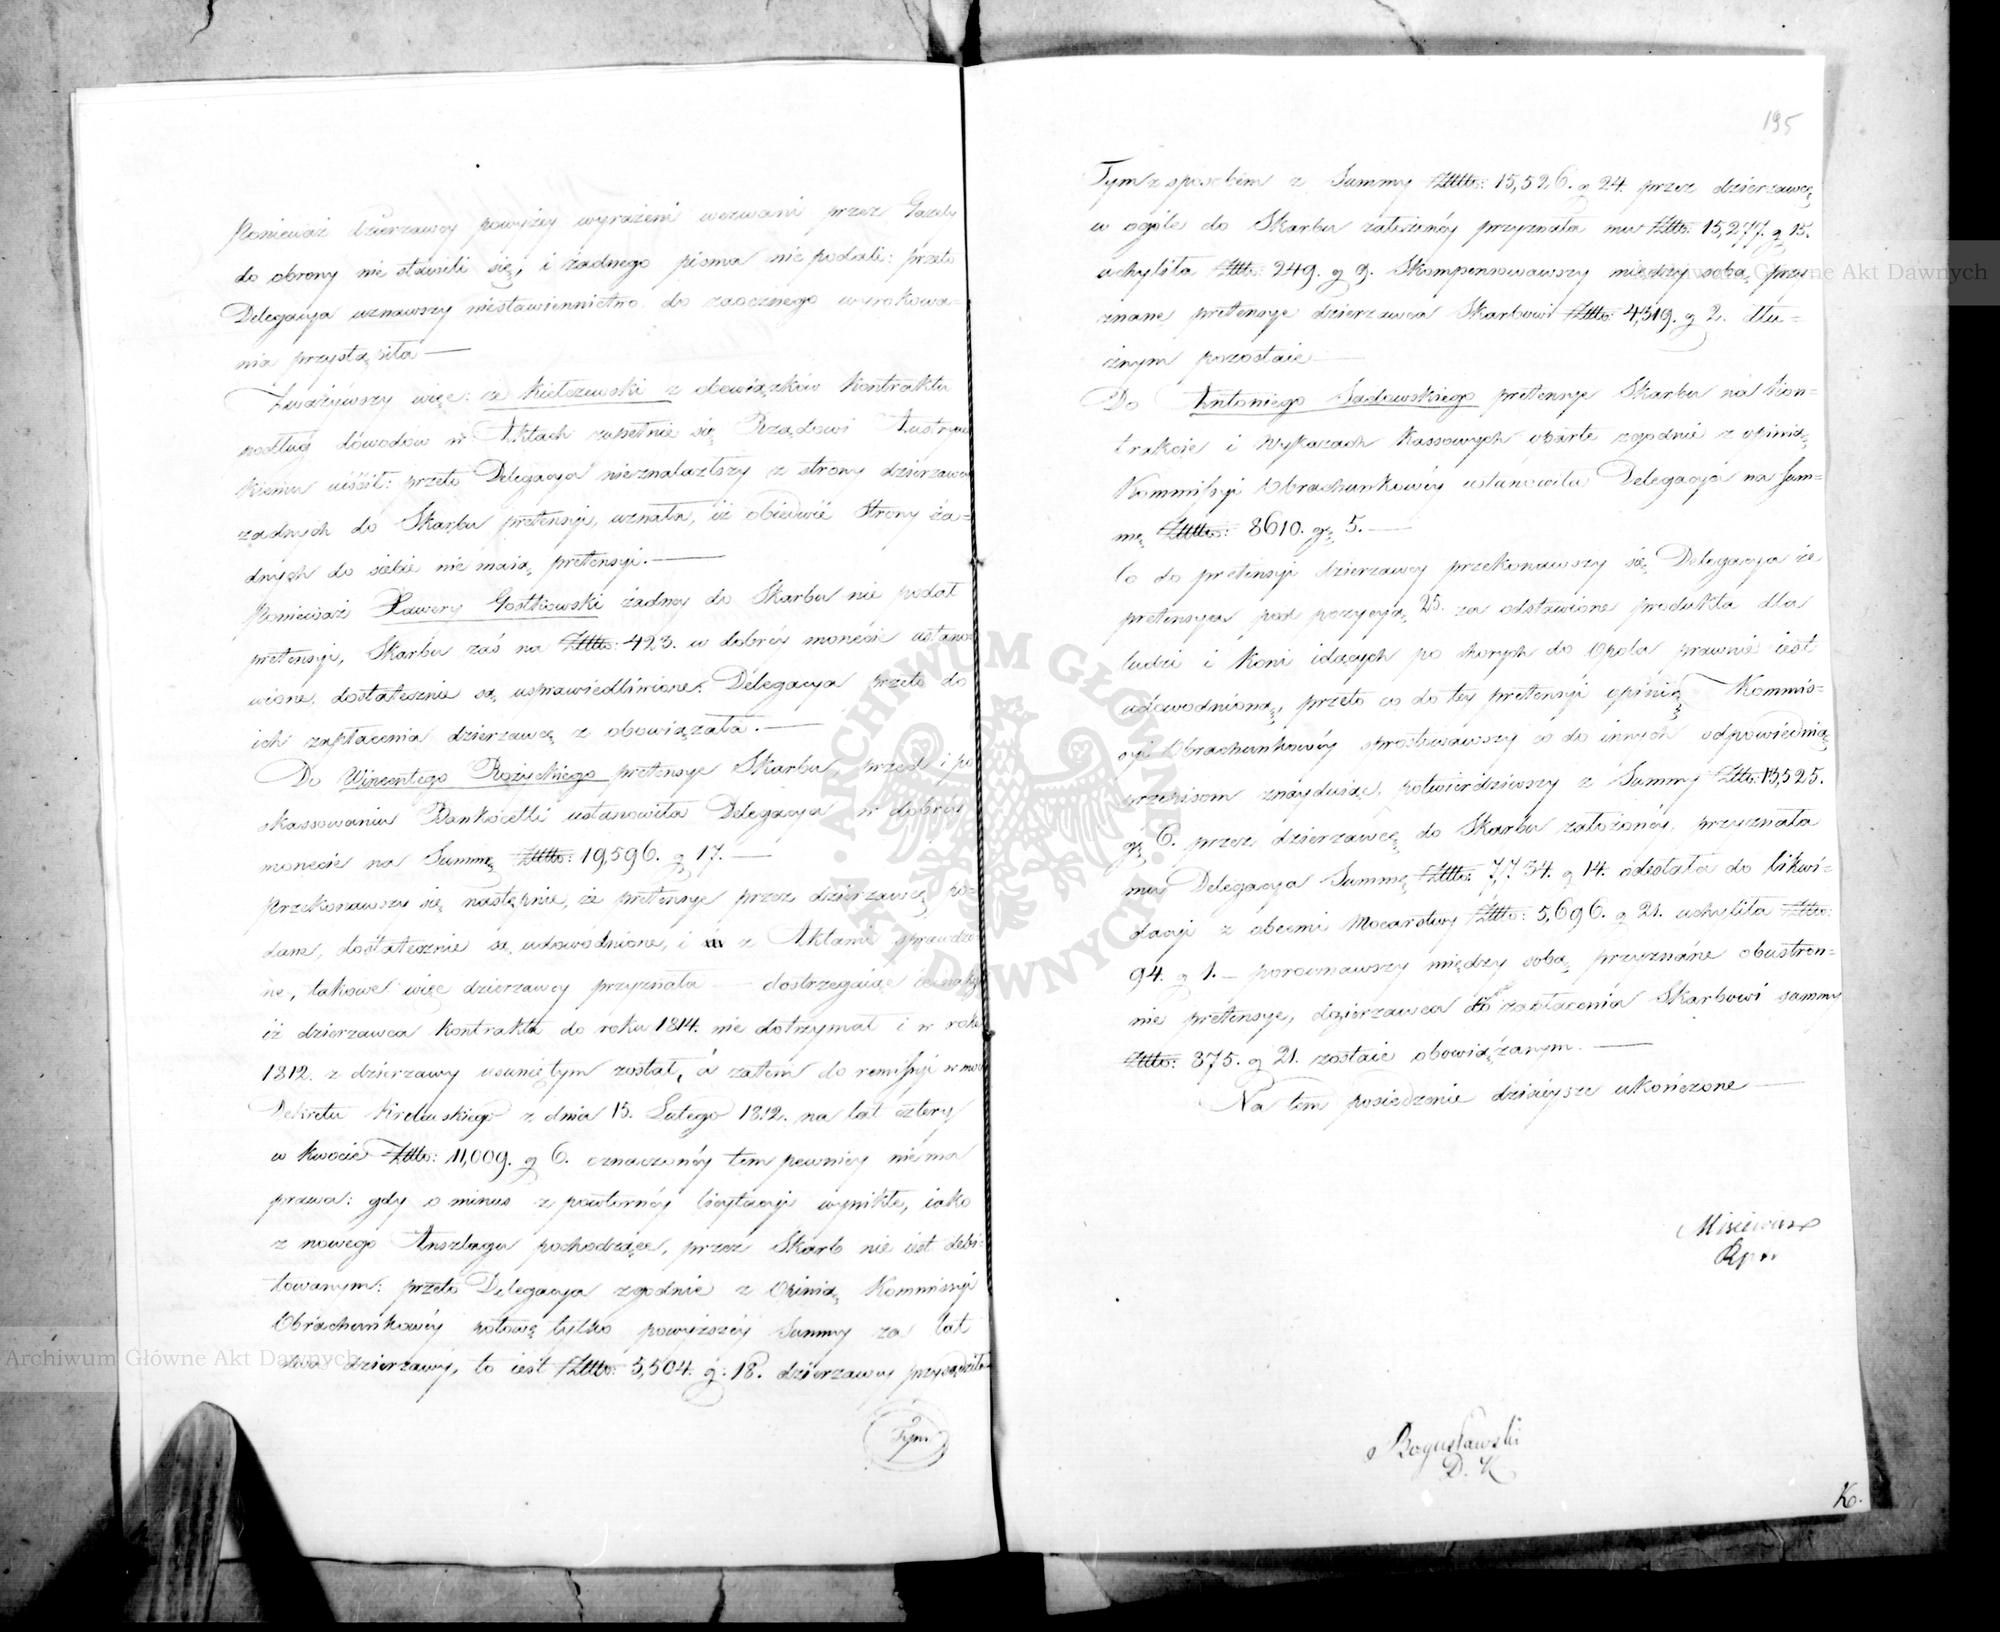 Ponieważ dzierzawcy powyżey wyrażeni wezwani przez Gazety
do obrony nie stawili się, i żadnego pisma nie podali: przeto
Delegacya uznawszy niestawiennictwo do zaocznego wyrokowa-
nia przystąpiła —
Zważywszy więc: że Kietczewski z obowiązków Kontraktu
podług dowodów w Aktach zupełnie się Rządowi Austryac
kiemu uiścił: przeto Delegacya nieznalazłszy z strony dzierzawcy
żądnych do Skarbu pretensyi, uznała, iż obiedwie Strony ża-
dnych do siebie nie maią pretensyi. —
Ponieważ Xawery Gostkowski żadney do Skarbu nie podał
pretensyi, Skarbu zaś na Złtto: 423. w dobréy monecie ustano-
wione, dostatecznie są usprawiedliwione: Delegacya przeto do
ich zapłacenia dzierzawcę z obowiązała. —
Do Wincentego Rożyckiego pretensye Skarbu, przed i po
skassowaniu Bankocetli ustanowiła Delegacya w dobréy
monecie na Summę Złtto: 19,596. g 17. —
Przekonawszy się następnie, że pretensye przez dzierzawcę po-
dane, dostatecznie są udowodnione, i z Aktami sprawdzo-
ne, takowe więc dzierzawcy przyznała — dostrzegaiąc iednakże
iż dzierzawca Kontraktu do roku 1814. nie dotrzymał i w roku
1812. z dzierzawy usuniętym został, a zatem do remissyi w moc
Dekretu Królewskiego z dnia 15. Lutego 1812. na lat cztery
w kwocie Złtto: 11,009. g 6. oznaczonéy tem pewniey niema
prawa: gdy o minus z powtornéy licytacyi wynikłe, iako
z nowego Anszlagu pochodzące, przez Skarb nie iest debi-
towanym: przeto Delegacya zgodnie z Opinią Kommissyi
Obrachunkowéy połowę tylko powyższéy Summy za lat
dwa dzierzawy, to iest Złtto: 5,504. g: 18. dzierzawcy przysądziła
Tym
195
Tym sposobem z Summy Złtto: 15,526. g 24. przez dzierzawcę
w ogóle do Skarbu założonéy przyznała mu Złtto: 15,277. g 15.
uchyliła Złtto: 249. g 9. Skompensowawszy między sobą przy
znane pretensye dzierzawca Skarbowi Złtto: 4,319. g 2. dłu-
żnym pozostaie —
Do Antoniego Sadowskiego pretensye Skarbu na Kon-
trakcie i Wykazach Kassowych oparte zgodnie z opinią
Kommissyi Obrachunkowéy ustanowiła Delegacya na Sum-
mę Złtto: 8610. g 5. —
Co do pretensyi dzierzawcy przekonawszy się Delegacya że
pretensya pod pozycyą 25. za odstawione produkta dla
ludzi i Koni idących po chorych do Opola prawnie iest
udowodnioną, przeto co do tey pretensyi opinią Kommis-
syi Obrachunkowéy sprostowawszy co do innych odpowiednią
przepisom znayduiąc, potwierdziwszy z Summy Złtto: 13,525.
g 6. przez dzierzawcę do Skarbu założonéy, przyznała
mu Delegacya Summę Złtto: 7,734. g 14. odesłała do likwi-
dacyi z obcemi Mocarstwy Złtto: 5,696. g 21. uchyliła Złtto:
94. g 1. — porownawszy między sobą przyznane obustron-
nie pretensye, dzierzawca do zapłacenia Skarbowi summy
Złtto: 875. g 21. zostaie obowiązanym. —
Na tem posiedzenie dzisieysze ukończone —
Bogusławski
D. K
Ko.
Archiwum Główne Akt Dawnych
Archiwum Główne Akt Dawnych
ARCHIWUM GŁÓWNE AKT DAWNYCH